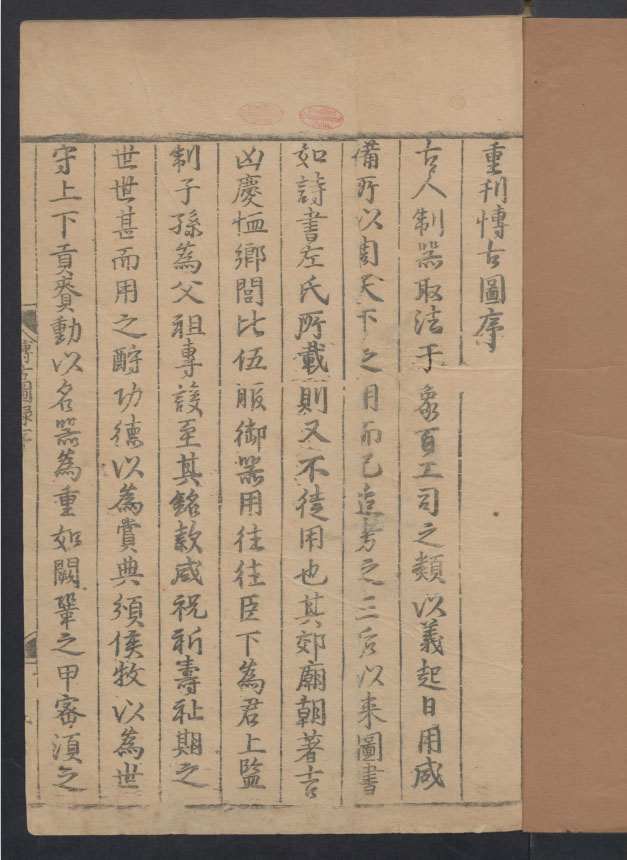 重刊博古圖序
古人制器取法于象百工司之類以義起日用咸
備所以周天下之用而已追考之三后以来圖書
如詩書左氏所載則又不徒用也其郊廟朝著吉
凶慶恤鄉閭比伍服御器用往往臣下為君上監
制子孫為父祖專設至其銘款咸祝祈壽祉期之
世世甚而用之酹功德以為賞典頒侯牧以為世
守上下貢賚動以名器為重如闕鞏之甲密湏之
博古圖錄序